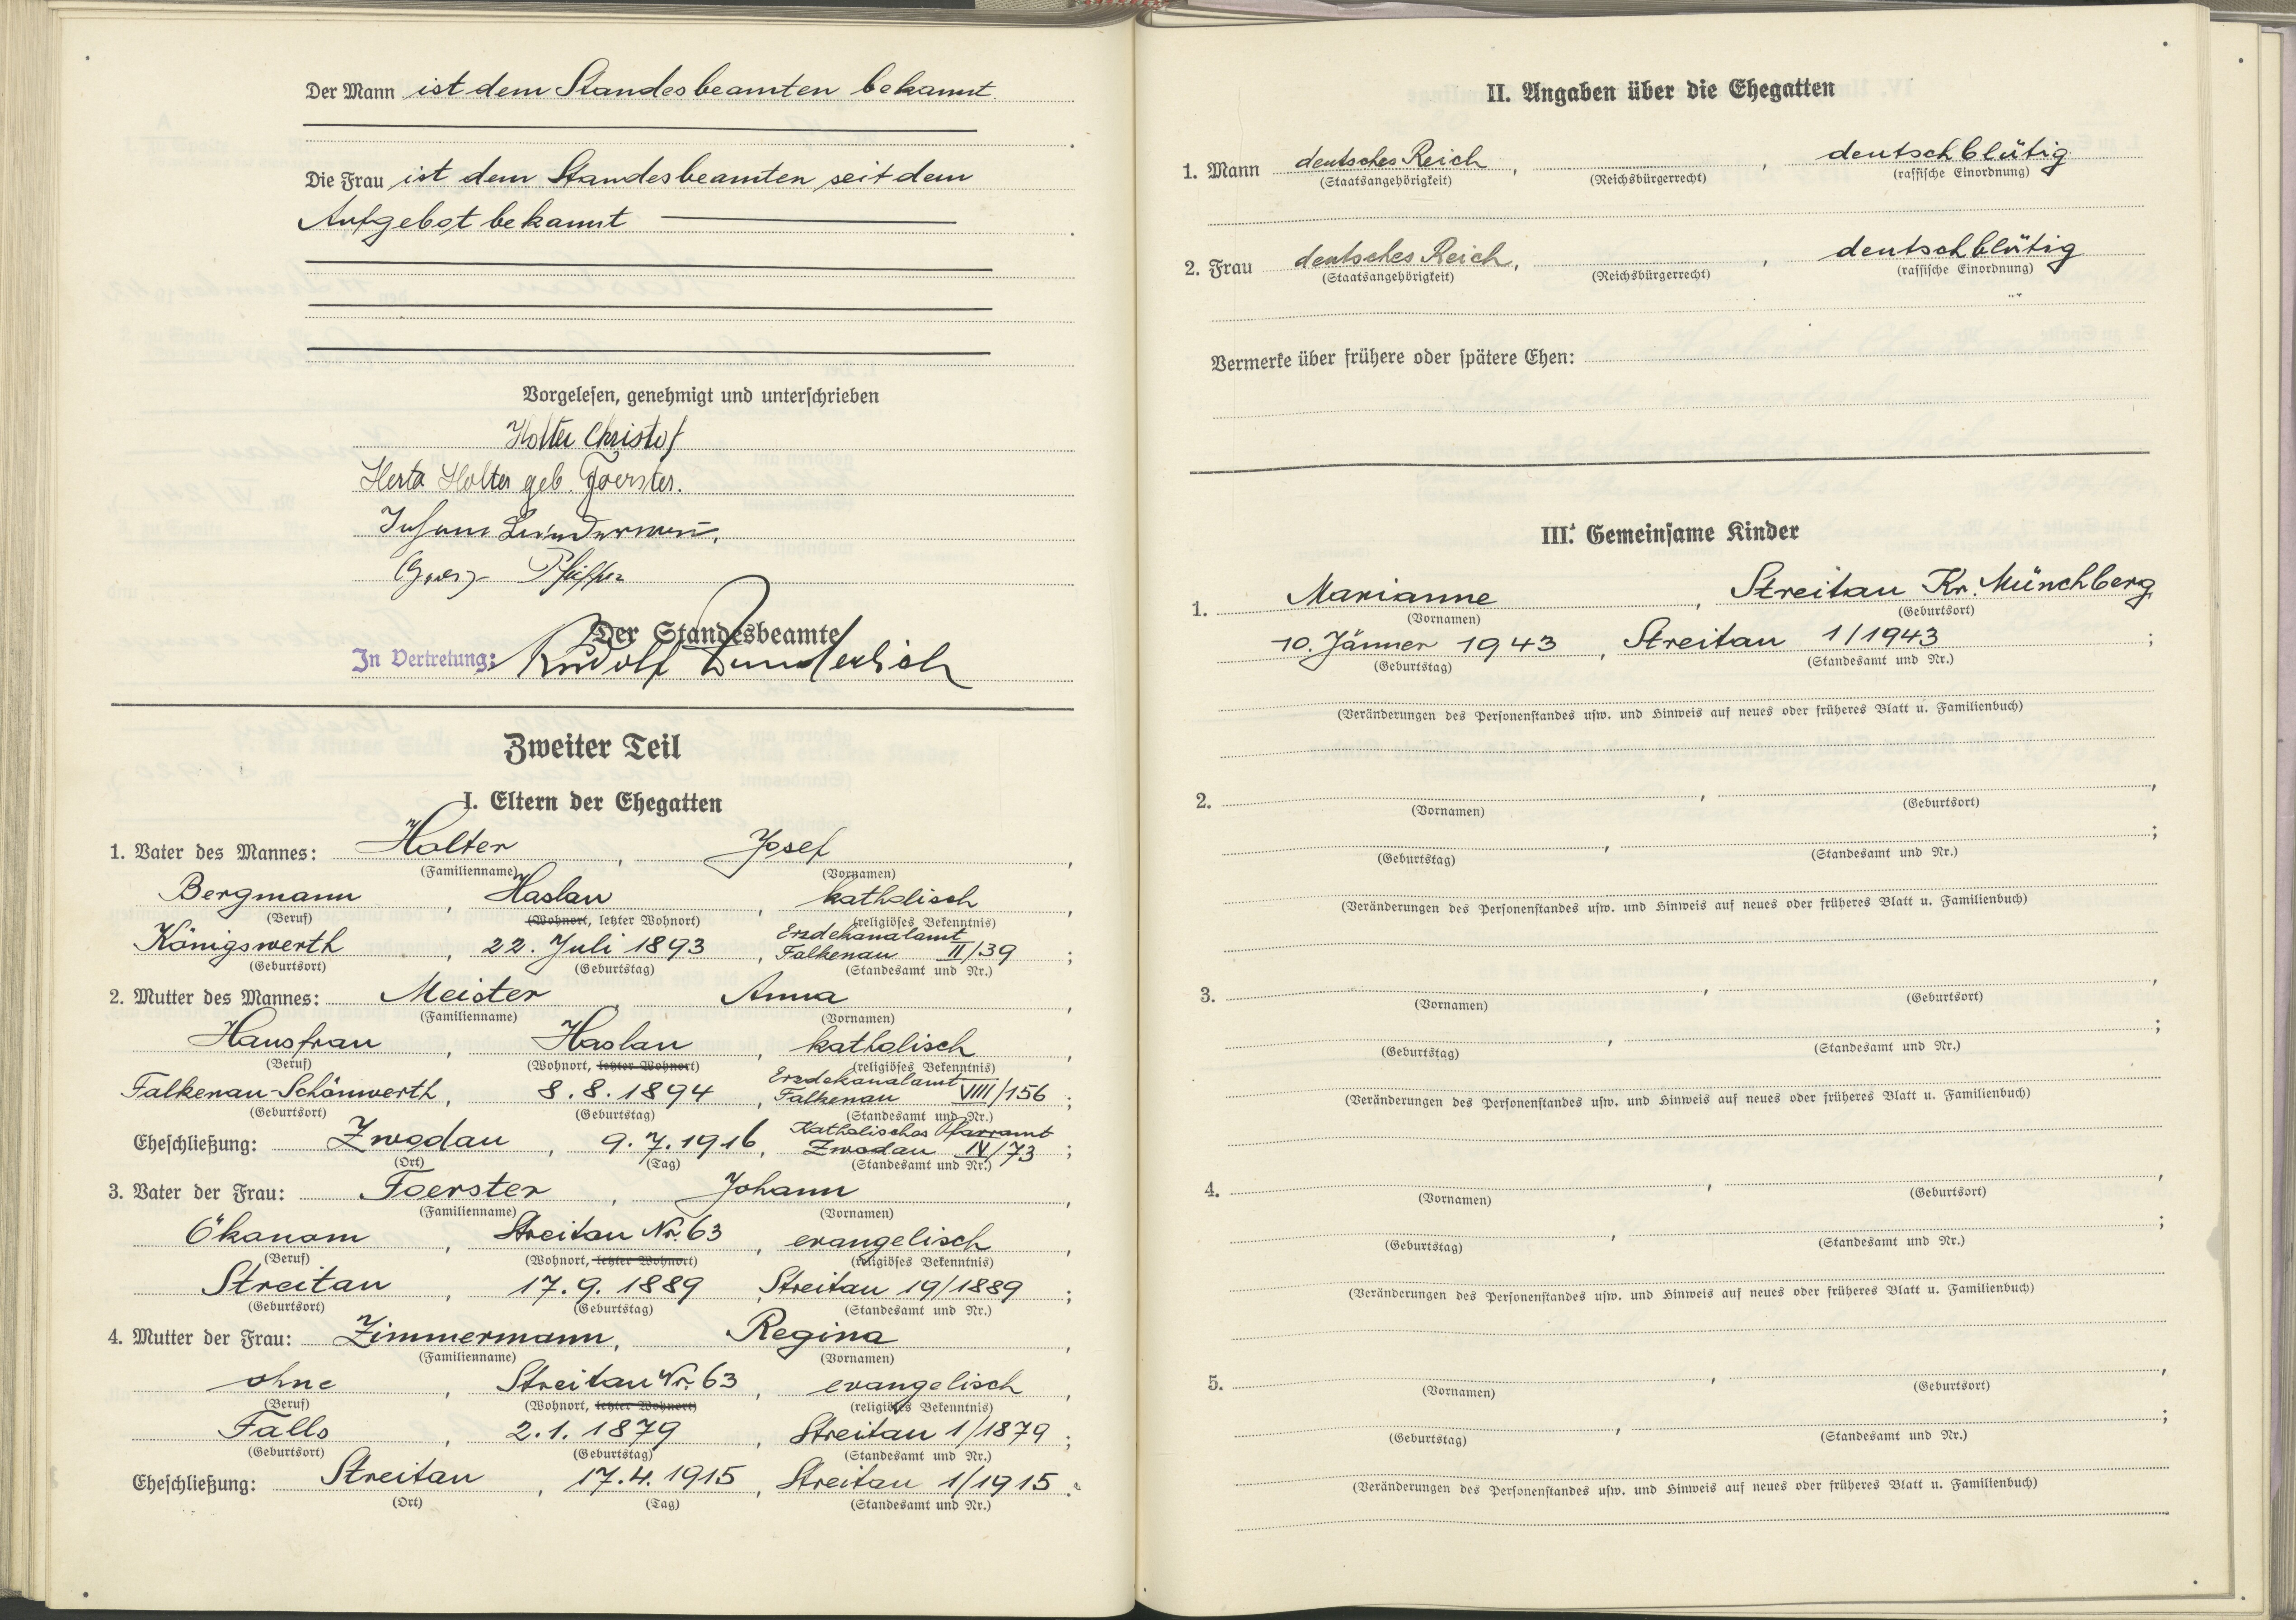 Der Mann ist dem Standesbeamten bekannt
Die Frau ist dem Standesbeamten seit dem
Aufgebot bekannt
Vorgelesen, genehmigt und unterschrieben
Holter Christof
Herta Holter geb. Foerster.
Pfeiffer
Der Standesbeamte
In Vertretung: Rudolf Wunderlich
Zweiter Teil
I. Eltern der Ehegatten
1. Vater des Mannes: Holter, Josef,
(Familienname) (Vornamen)
Bergmann, Haslau, katholisch,
(Beruf) (Wohnort, letzter Wohnort) (religiöses Bekenntnis)
Erzdekanalamt
Königswerth, 22. Juli 1893, Falkenau II/39;
(Geburtsort) (Geburtstag) (Standesamt und Nr.)
2. Mutter des Mannes: Meister, Anna,
(Familienname) (Vornamen)
Hausfrau, Haslau, katholisch,
(Beruf) (Wohnort, letzter Wohnort) (religiöses Bekenntnis)
Erzdekanalamt
Falkenau-Schönwerth, 8.8.1894, Falkenau VIII/156;
(Geburtsort) (Geburtstag) (Standesamt und Nr.)
Katholisches Pfarramt
Eheschließung: Zwodau, 9.7.1916, Zwodau IV/73;
(Ort) (Tag) (Standesamt und Nr.)
3. Vater der Frau: Foerster, Johann,
(Familienname) (Vornamen)
Ökonom, Streitau Nr. 63, evangelisch,
(Beruf) (Wohnort, letzter Wohnort) (religiöses Bekenntnis)
Streitau, 17.9.1889, Streitau 19/1889;
(Geburtsort) (Geburtstag) (Standesamt und Nr.)
4. Mutter der Frau: Zimmermann, Regina,
(Familienname) (Vornamen)
ohne, Streitau Nr. 63, evangelisch,
(Beruf) (Wohnort, letzter Wohnort) (religiöses Bekenntnis)
Falls, 2.1.1879, Streitau 1/1879;
(Geburtsort) (Geburtstag) (Standesamt und Nr.)
Eheschließung: Streitau, 17.4.1915, Streitau 1/1915.
(Ort) (Tag) (Standesamt und Nr.)
II. Angaben über die Ehegatten
1. Mann deutsches Reich, , deutschblütig
(Staatsangehörigkeit) (Reichsbürgerrecht) (rassische Einordnung)
2. Frau deutsches Reich, , deutschblütig
(Staatsangehörigkeit) (Reichsbürgerrecht) (rassische Einordnung)
Vermerke über frühere oder spätere Ehen:
III. Gemeinsame Kinder
1. Marianne, Streitau Kr. Münchberg
(Vornamen) (Geburtsort)
10. Jänner 1943, Streitau 1/1943;
(Geburtstag) (Standesamt und Nr.)
(Veränderungen des Personenstandes usw. und Hinweis auf neues oder früheres Blatt u. Familienbuch)
2. , ,
(Vornamen) (Geburtsort)
, ;
(Geburtstag) (Standesamt und Nr.)
(Veränderungen des Personenstandes usw. und Hinweis auf neues oder früheres Blatt u. Familienbuch)
3. , ,
(Vornamen) (Geburtsort)
, ;
(Geburtstag) (Standesamt und Nr.)
(Veränderungen des Personenstandes usw. und Hinweis auf neues oder früheres Blatt u. Familienbuch)
4. , ,
(Vornamen) (Geburtsort)
, ;
(Geburtstag) (Standesamt und Nr.)
(Veränderungen des Personenstandes usw. und Hinweis auf neues oder früheres Blatt u. Familienbuch)
5. , ,
(Vornamen) (Geburtsort)
, ;
(Geburtstag) (Standesamt und Nr.)
(Veränderungen des Personenstandes usw. und Hinweis auf neues oder früheres Blatt u. Familienbuch)